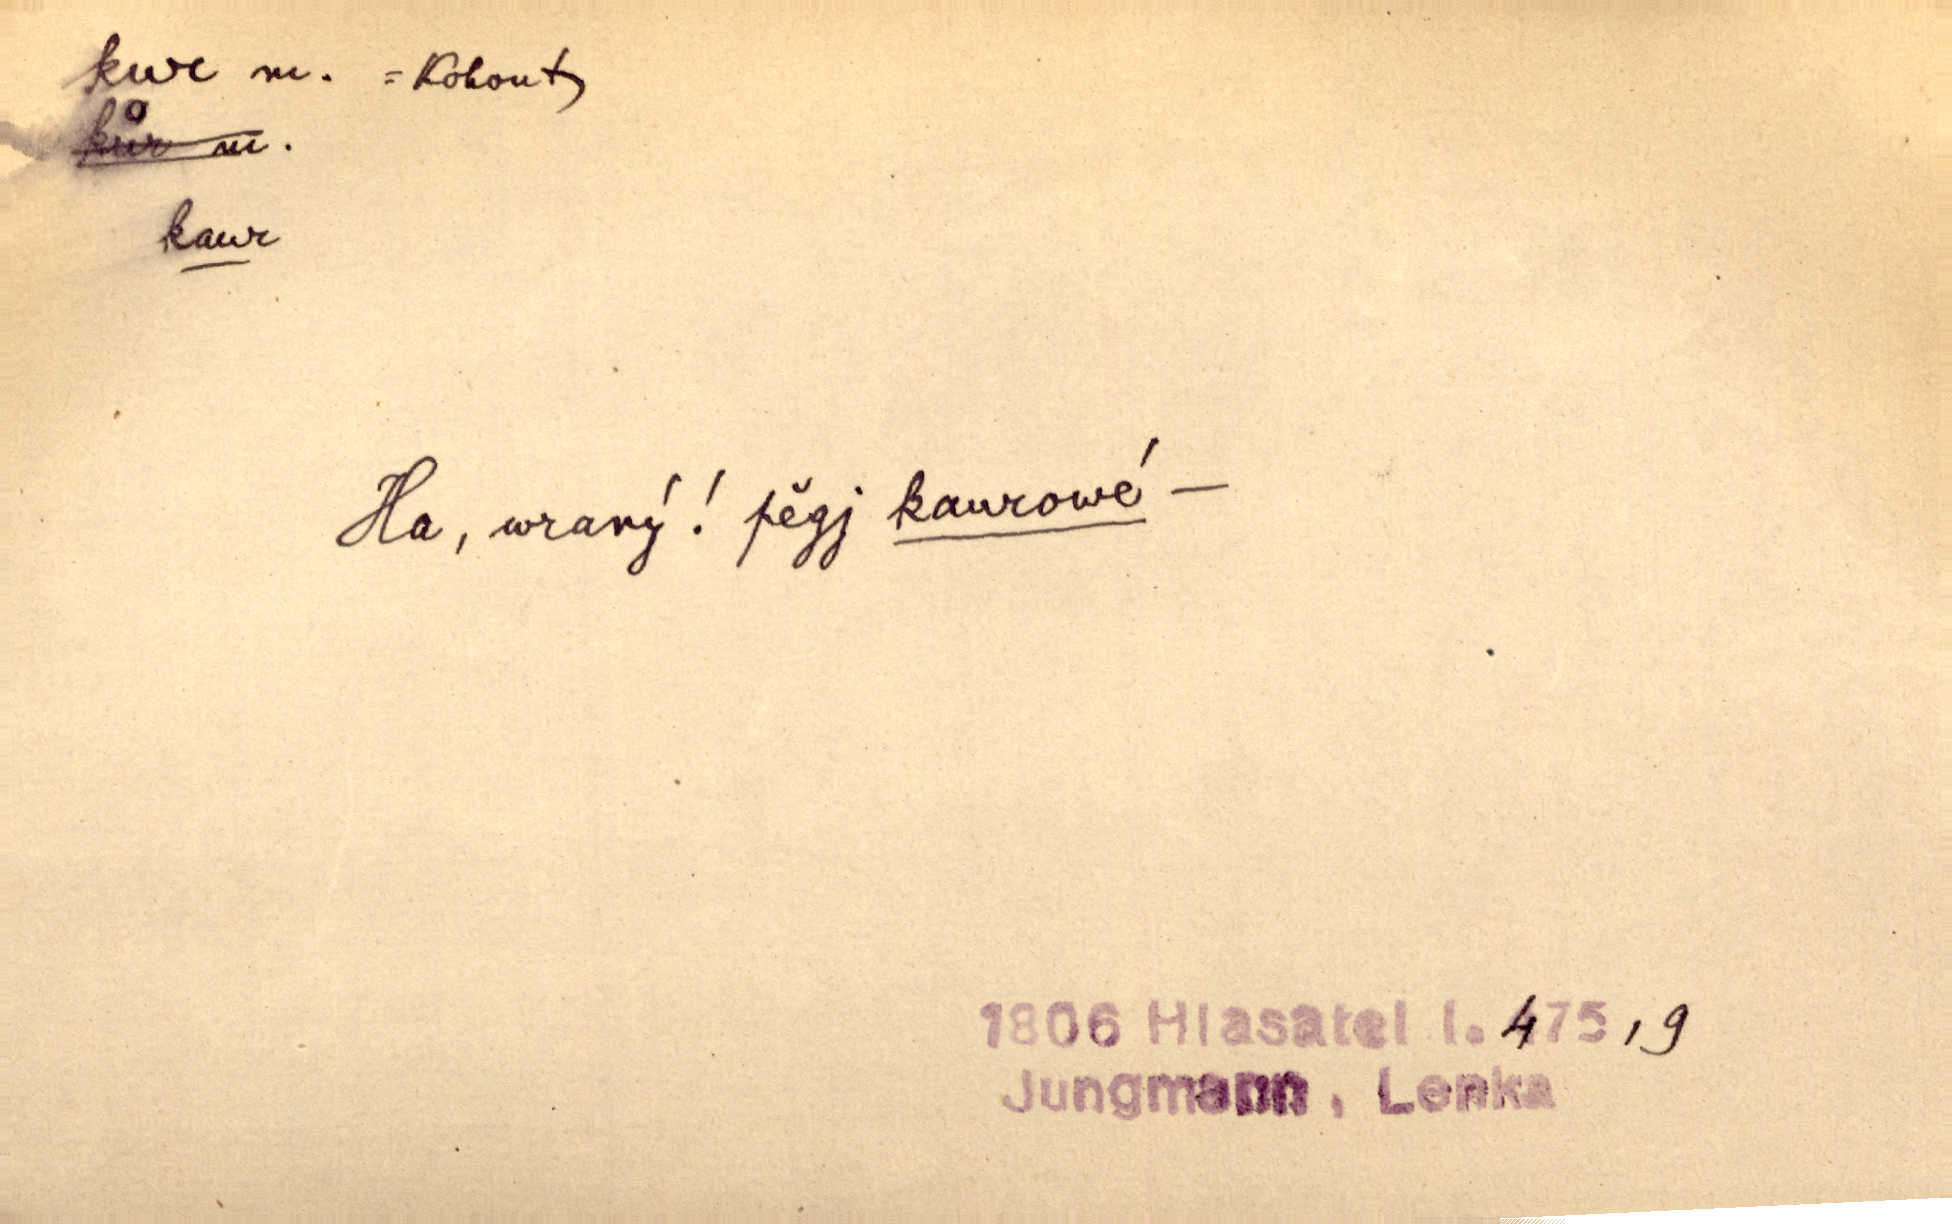 kur m. = Kohout
kůr m.
kaur
Ha, wraný! pěgj kaurowé —
1806 Hlasatel I. 475,9
Jungmann, Lenka